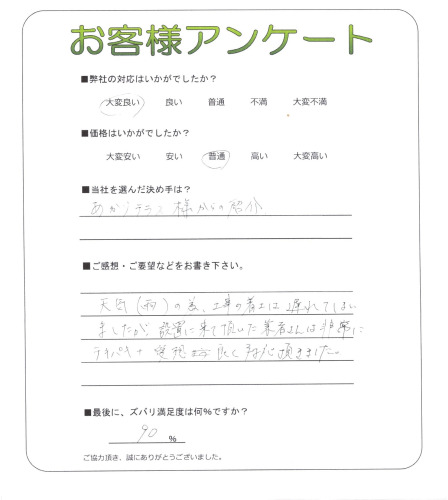 お客様アンケート
■弊社の対応はいかがでしたか?
大変良い 良い 普通 不満 大変不満
■価格はいかがでしたか?
大変安い 安い 普通 高い 大変高い
■当社を選んだ決め手は?
様からの紹介
■ご感想・ご要望などをお書き下さい。
天気(雨)の為、工事の着工は遅れてしまい
ましたが 設置に来て頂いた業者さんは非常に
テキパキ 良く 頂きました。
■最後に、ズバリ満足度は何%ですか?
90 %
ご協力頂き、誠にありがとうございました。